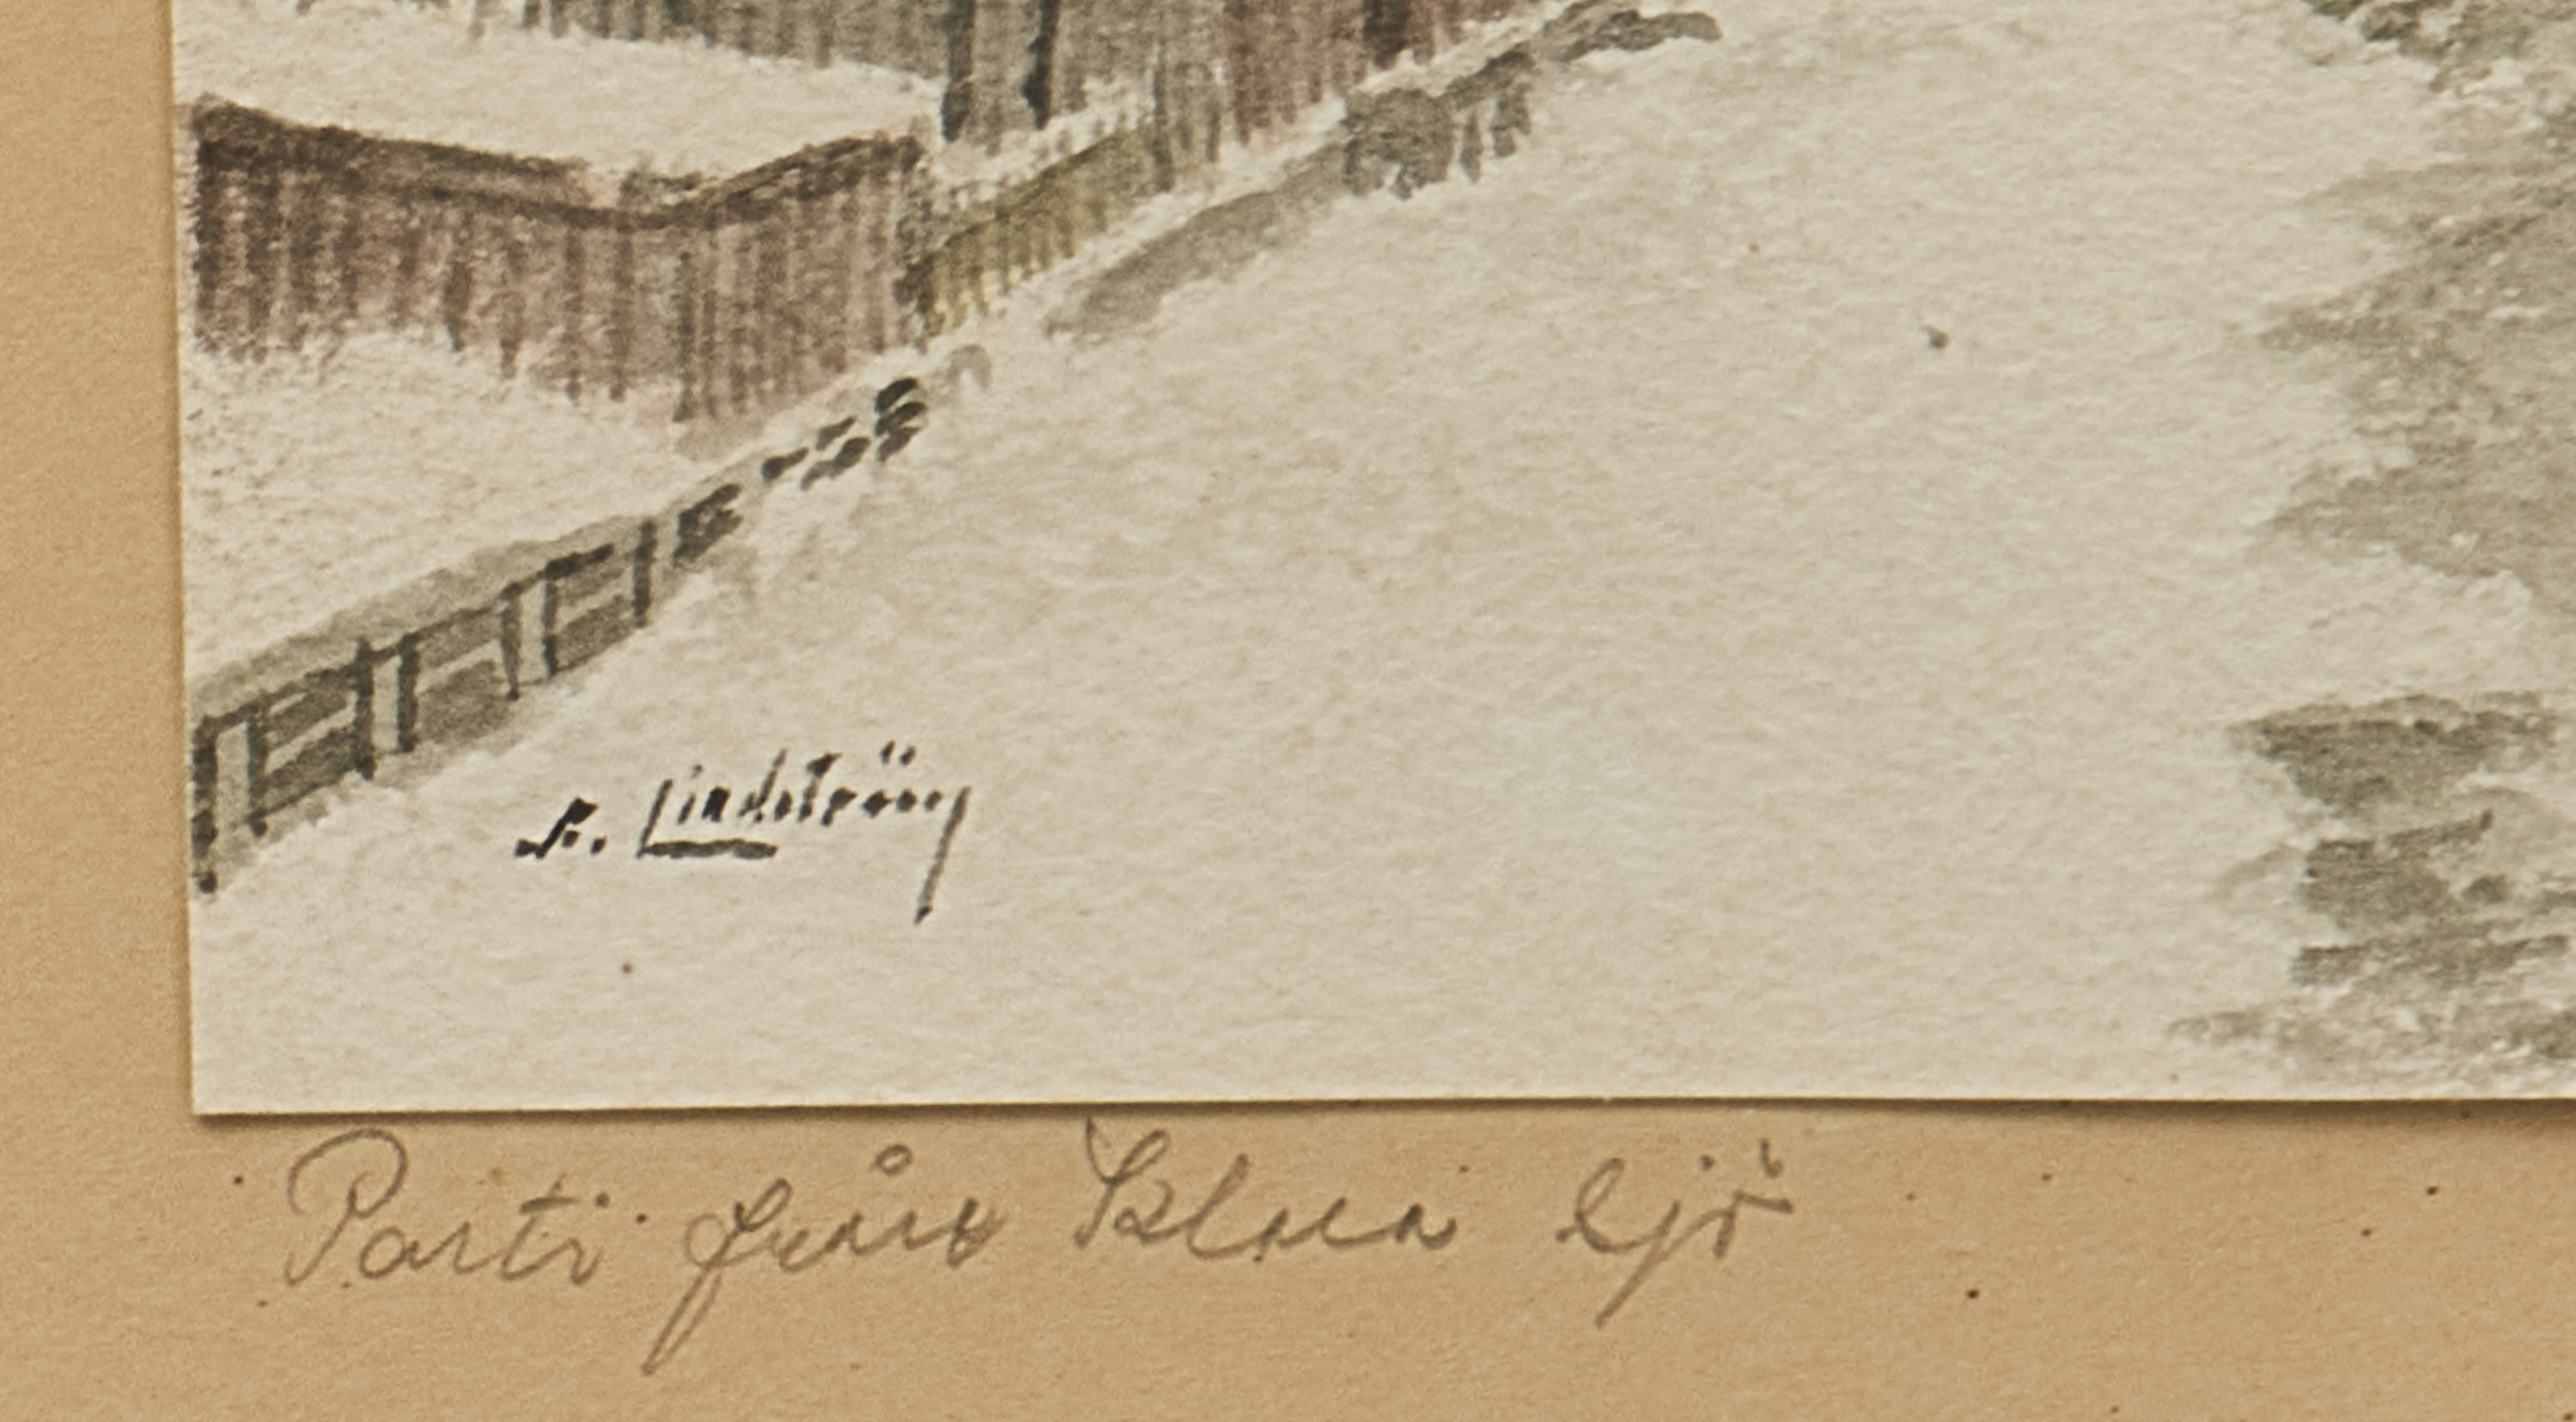 Lindström
Parti från Klara sjö